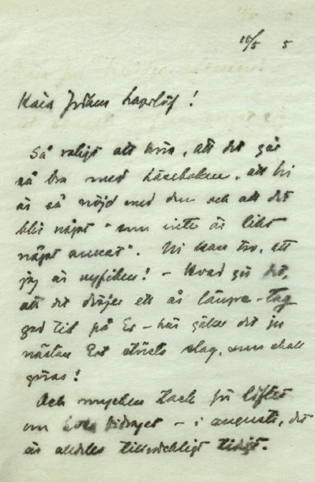 15/5 5
Kära Fröken Lagerlöf!
Så roligt att höra, att det går
så bra med läseboken, att Ni
är så nöjd med den och att det
blir något "som inte är likt
något annat". Ni kan tro, att
jag är nyfiken! – Hvad gör det,
att det dröjer ett år längre – tag
god tid på Er – här gäller det ju
nästan Ert största slag, som skall
göras!
Och mycken tack för löftet
om bidraget – i augusti, det
är alldeles tillräckligt tidigt.